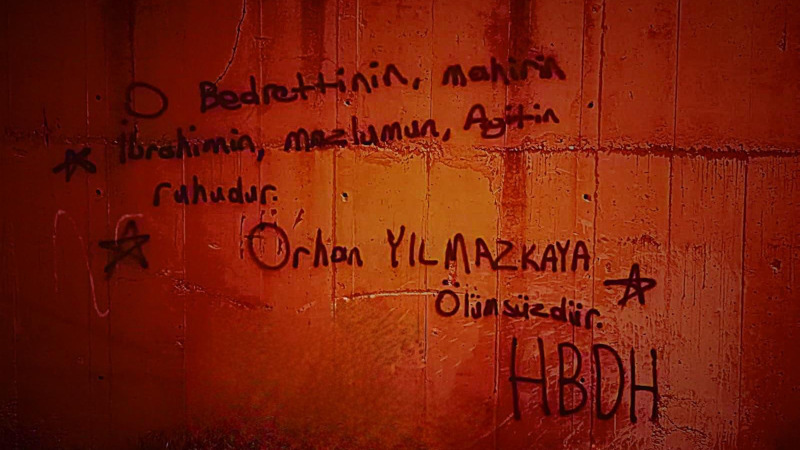 O Bedrettinin, mahirin
İbrahimin, mazlumun, Agitin
ruhudur.
Orhan YILMAZKAYA
Ölümsüzdür.
HBDH